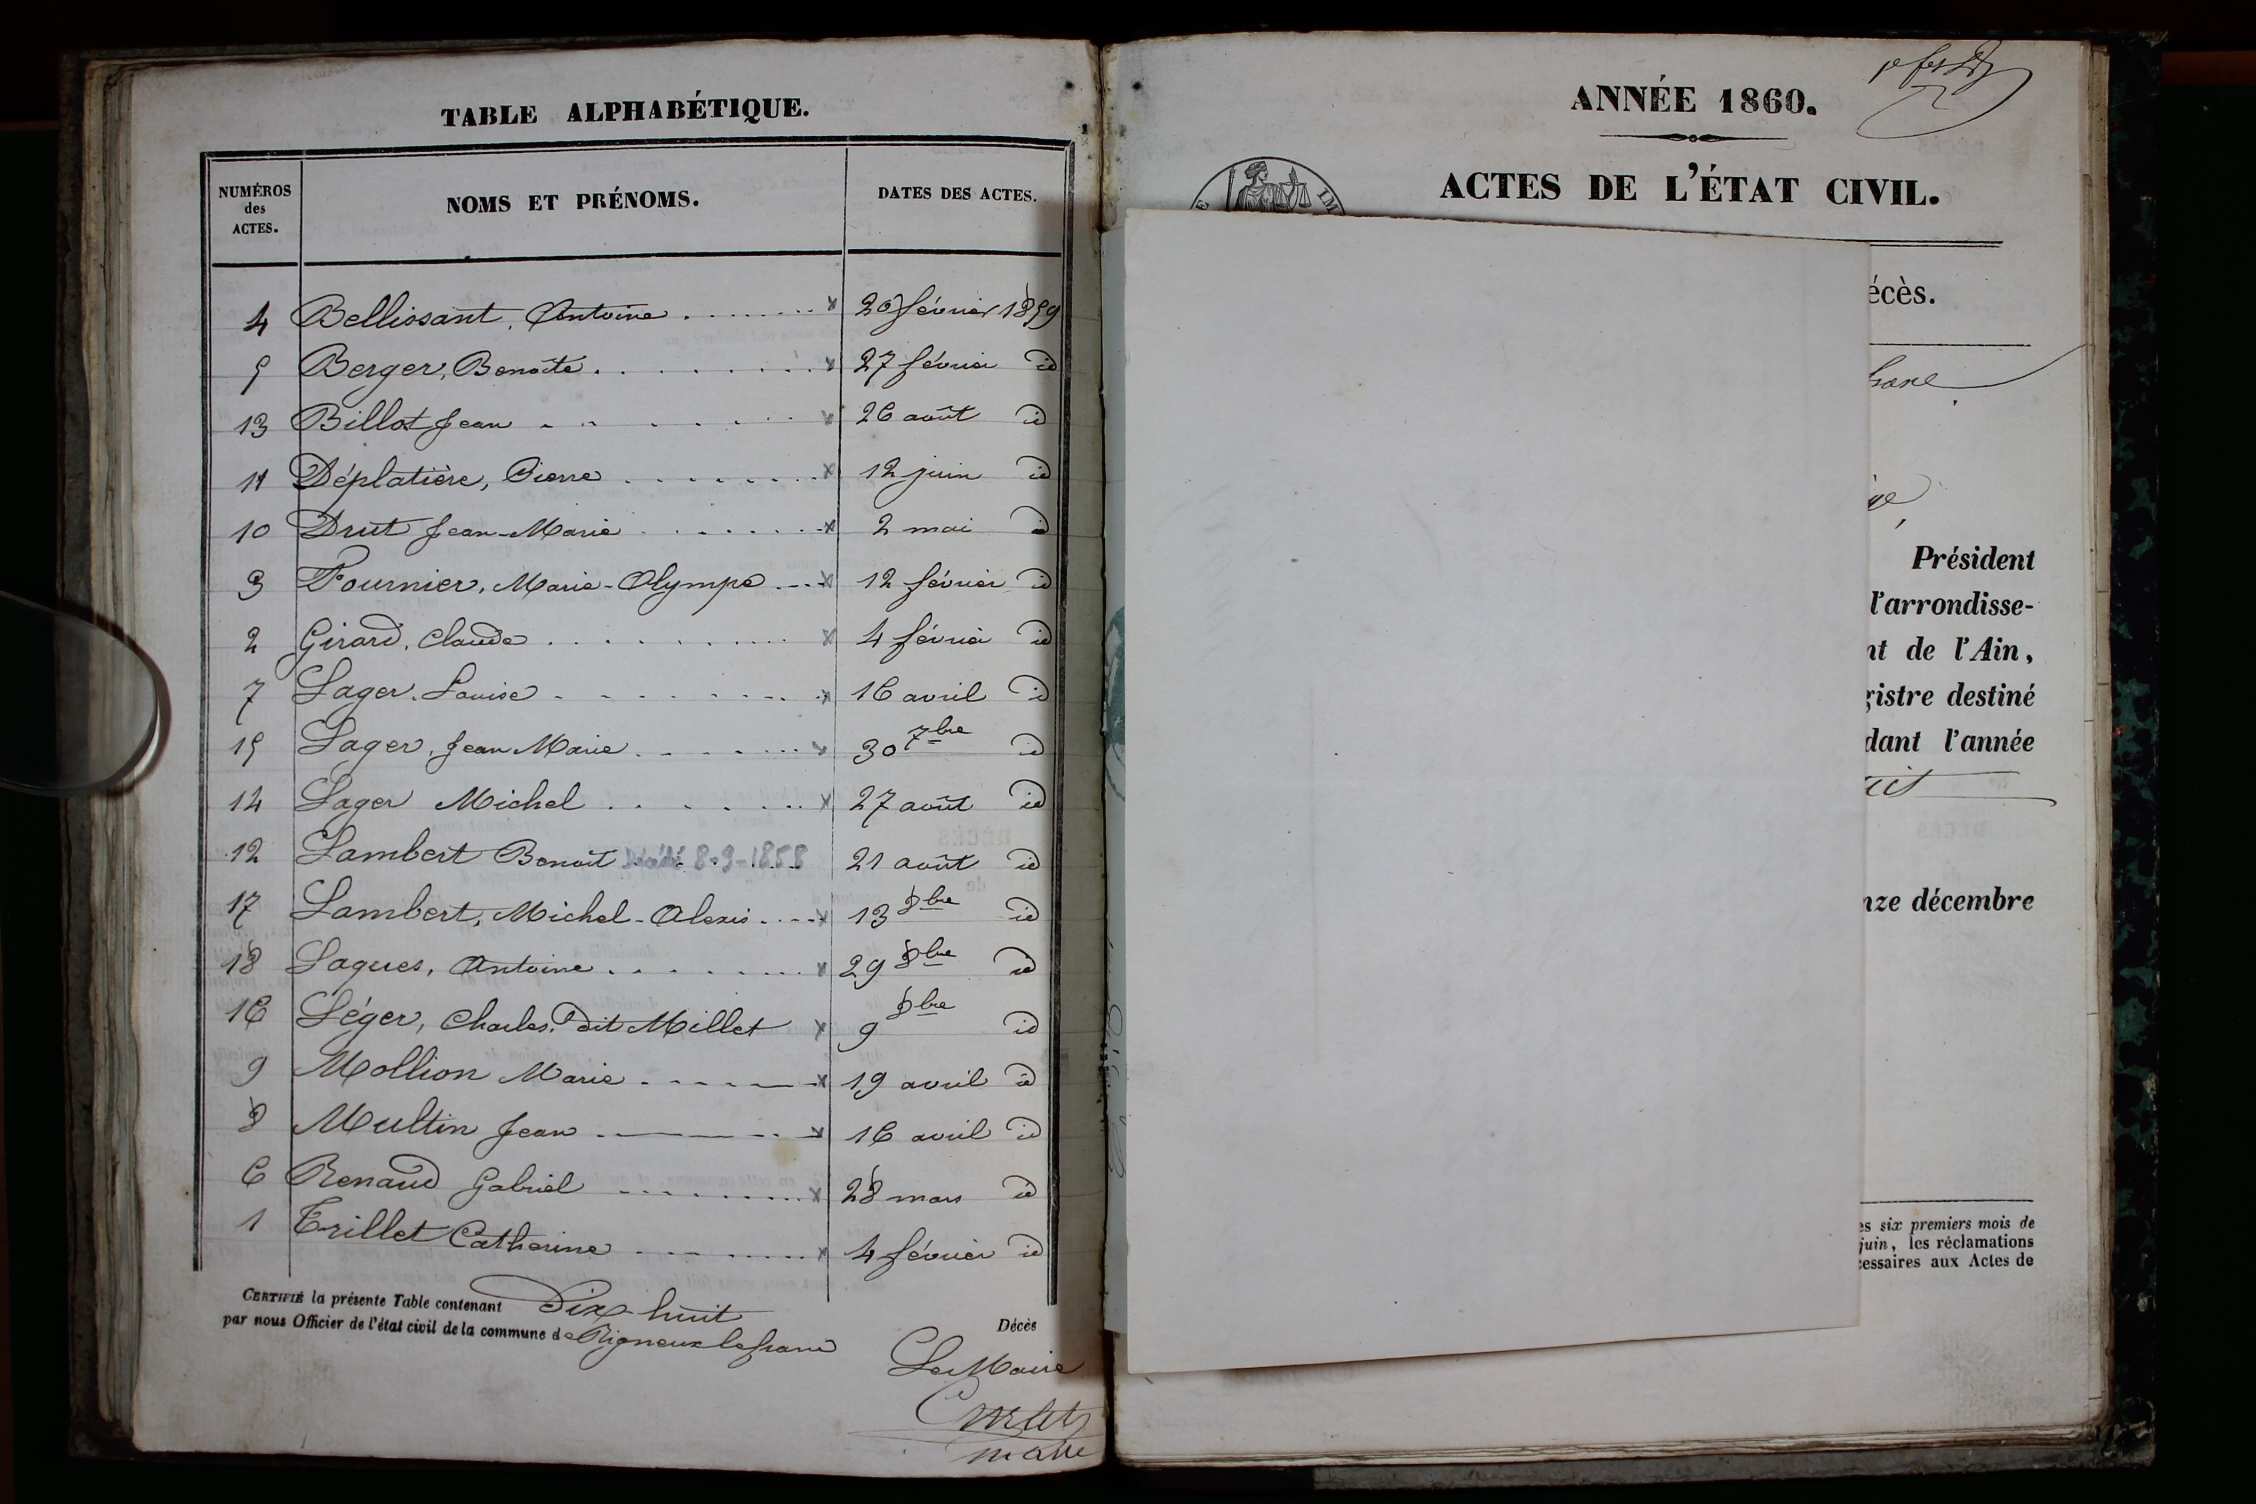 TABLE ALPHABÉTIQUE.
NUMÉROS des ACTES. NOMS ET PRÉNOMS. DATES DES ACTES.
4 Bellissant, Antoine 20 février 1859
5 Berger, Benoite 27 février id
13 Billot Jean 26 août id
11 Déplatière, Pierre 12 juin id
10 Drut Jean-Marie 2 mai id
3 Fournier, Marie-Olympe 12 février id
2 Girard, Claude 4 février id
7 Lager, Louise 16 avril id
15 Lager, Jean Marie 30 7bre id
14 Lager Michel 27 août id
12 Lambert Benoit décédé 8-9-1858 21 août id
17 Lambert, Michel-Alexis 13 8bre id
18 Laques, Antoine 29 8bre id
16 Léger, Charles, dit Millet 9 8bre id
9 Mollion Marie 19 avril id
8 Multin Jean 16 avril id
6 Renaud Gabriel 28 mars id
1 Trillet Catherine 4 février id
CERTIFIÉ la présente Table contenant Dix-huit Décès
par nous Officier de l'état civil de la commune de Rigneux le franc
Le Maire
maire
ANNÉE 1860.
ACTES DE L'ÉTAT CIVIL.
écès.
Président
l'arrondisse-
nt de l'Ain,
gistre destiné
dant l'année
nze décembre
es six premiers mois de
juin, les réclamations
cessaires aux Actes de